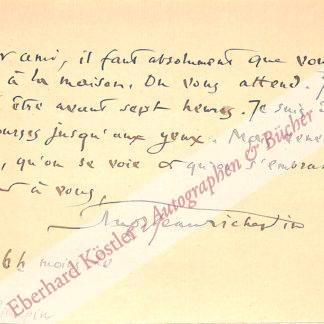 ami, il faut absolument que vou
à la maison. On vous attend.
être avant sept heures. Je suis
jusqu'aux yeux. Mais vene
, qu'on se voie et qu'on s'embras
à vous,
6h moins
Eberhard Köstler Autographen & Bücher